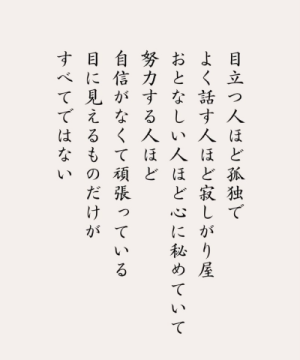 目立つ人ほど孤独で
よく話す人ほど寂しがり屋
おとなしい人ほど心に秘めていて
努力する人ほど
自信がなくて頑張っている
目に見えるものだけが
すべてではない